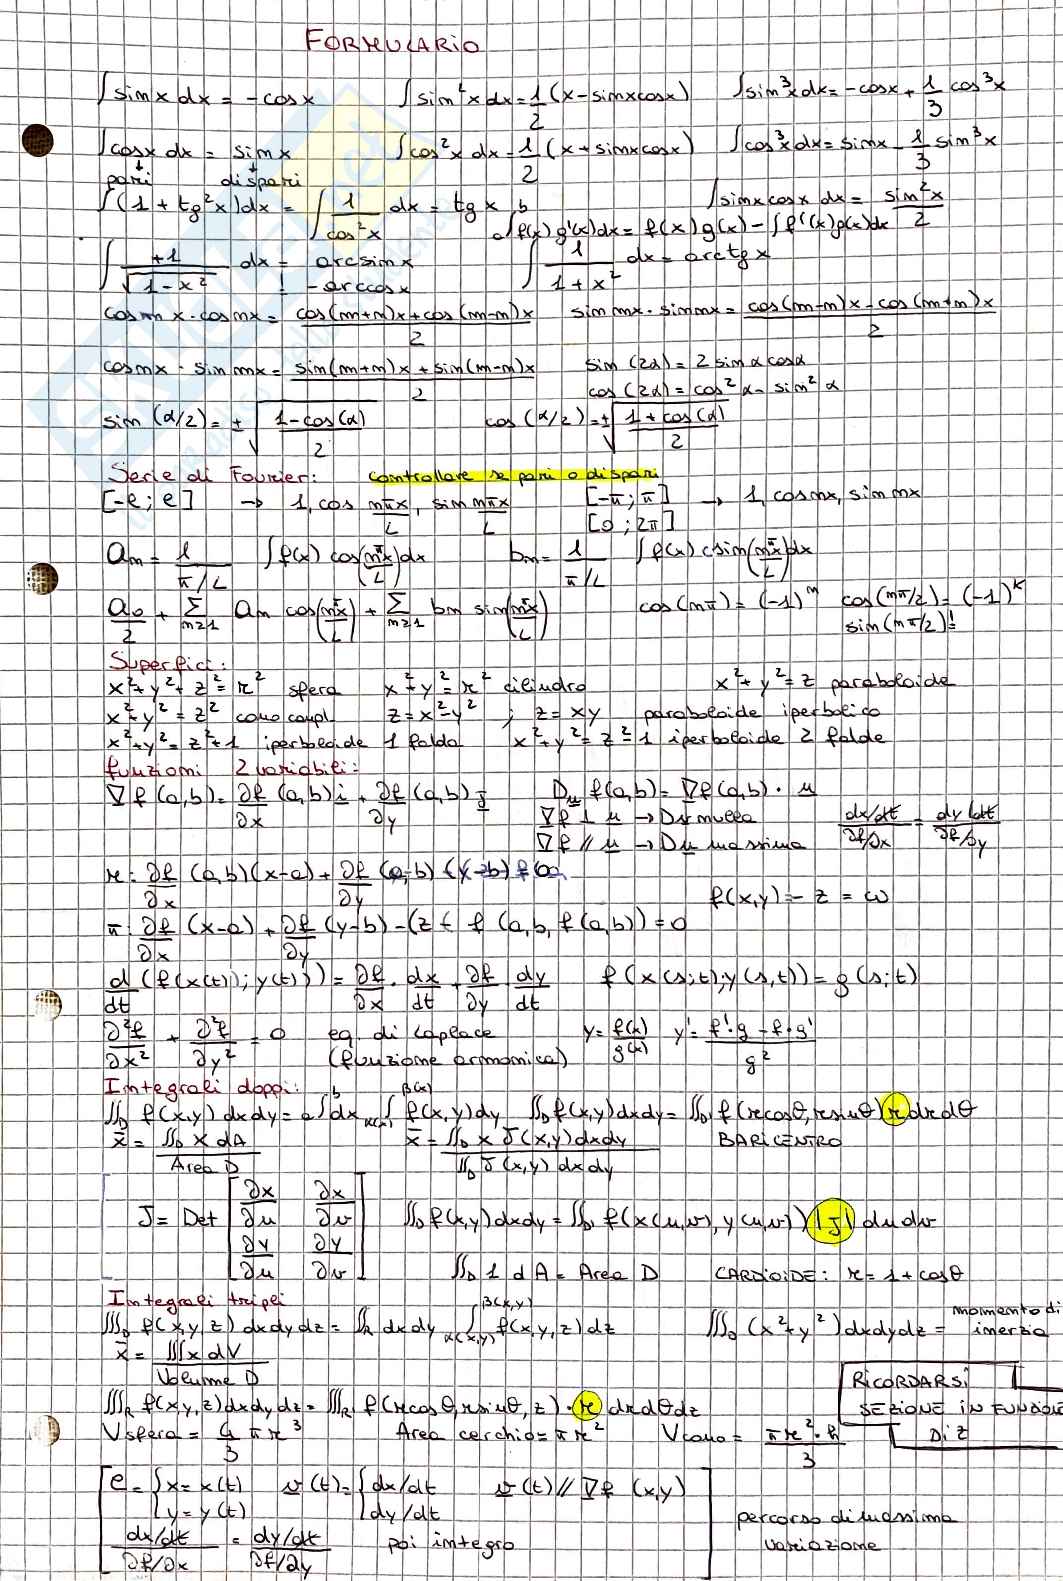 FORMULARIO
∫sinx dx = -cosx ∫sin²x dx = 1/2 (x-sinxcosx) ∫sin³x dx = -cosx + 1/3 cos³x
∫cosx dx = sinx ∫cos²x dx = 1/2 (x+sinxcosx) ∫cos³x dx = sinx - 1/3 sin³x
↓ pari ↓ dispari
∫(1+tg²x)dx = ∫ 1/cos²x dx = tgx ∫sinxcosx dx = sin²x/2
a∫b f(x)g'(x)dx = f(x)g(x) - ∫f'(x)g(x)dx
∫ +1/√(1-x²) dx = arcsinx ∫ 1/(1+x²) dx = arctgx
-arccosx
cosnx·cosmx = (cos(n+m)x + cos(n-m)x)/2 sinnx·sinmx = (cos(n-m)x - cos(n+m)x)/2
cosmx·sinnx = (sin(n+m)x + sin(n-m)x)/2 sin(2α) = 2sinαcosα
cos(2α) = cos²α - sin²α
sin(α/2) = ±√((1-cos(α))/2) cos(α/2) = ±√((1+cos(α))/2)
Serie di Fourier: controllare se pari o dispari
[-e;e] → 1, cos nπx/L, sin nπx/L [-π;π] → 1, cosnx, sinnx
[0;2π]
an = 1/(π/L) ∫f(x) cos(nπx/L)dx bn = 1/(π/L) ∫f(x) sin(nπx/L)dx
a0/2 + Σ n≥1 an cos(nπx/L) + Σ n≥1 bn sin(nπx/L) cos(nπ) = (-1)ⁿ cos(nπ/2) = (-1)ᵏ
sin(nπ/2)!
Superfici:
x²+y²+z²=r² sfera x²+y²=r² cilindro x²+y²=z paraboloide
x²+y²=z² cono compl. z=x²-y² ; z=xy paraboloide iperbolico
x²+y²=z²+1 iperboloide 1 falda x²+y²=z²-1 iperboloide 2 falde
funzioni 2 variabili:
∇f(a,b) = ∂f/∂x (a,b)i + ∂f/∂y (a,b)j Du f(a,b) = ∇f(a,b)·u
∇f ⊥ u → Du nulla (dx/dt)/(∂f/∂x) = (dy/dt)/(∂f/∂y)
∇f // u → Du massima
r: ∂f/∂x (a,b)(x-a) + ∂f/∂y (a,b)(y-b) = 0
f(x,y) - z = ω
π: ∂f/∂x (x-a) + ∂f/∂y (y-b) - (z - f (a,b, f(a,b)) = 0
d/dt (f(x(t));y(t))) = ∂f/∂x · dx/dt + ∂f/∂y dy/dt f(x(s;t);y(s,t)) = g(s;t)
∂²f/∂x² + ∂²f/∂y² = 0 eq. di Laplace y = f(x)/g(x) y' = (f'·g - f·g')/g²
(funzione armonica)
Integrali doppi:
∬D f(x,y) dxdy = a∫b dx α(x)∫β(x) f(x,y)dy ∬D f(x,y)dxdy = ∬D' f(rcosθ,rsinθ) r drdθ
x̄ = ∬D x dA / Area D x̄ = ∬D x δ(x,y)dxdy / ∬D δ(x,y)dxdy BARICENTRO
J = Det [∂x/∂u ∂x/∂v
∂y/∂u ∂y/∂v] ∬D f(x,y)dxdy = ∬D' f(x(u,v), y(u,v)) |J| dudv
∬D 1 dA = Area D CARDIOIDE: r = 1+cosθ
Integrali tripli
∭D f(x,y,z) dxdydz = ∬R dxdy α(x,y)∫β(x,y) f(x,y,z)dz ∭D (x²+y²)dxdydz = momento di inerzia
x̄ = ∭x dV / Volume D
RICORDARSI
∭R f(x,y,z)dxdydz = ∭R' f(rcosθ,rsinθ,z)·r drdθdz SEZIONE IN FUNZIONE
Vsfera = 4/3 πr³ Area cerchio = πr² Vcono = πr²·h/3 DI Z
e = {x = x(t) v(t) = {dx/dt v(t) // ∇f (x,y)
y = y(t) dy/dt percorso di massima
(dx/dt)/(∂f/∂x) = (dy/dt)/(∂f/∂y) poi integro variazione